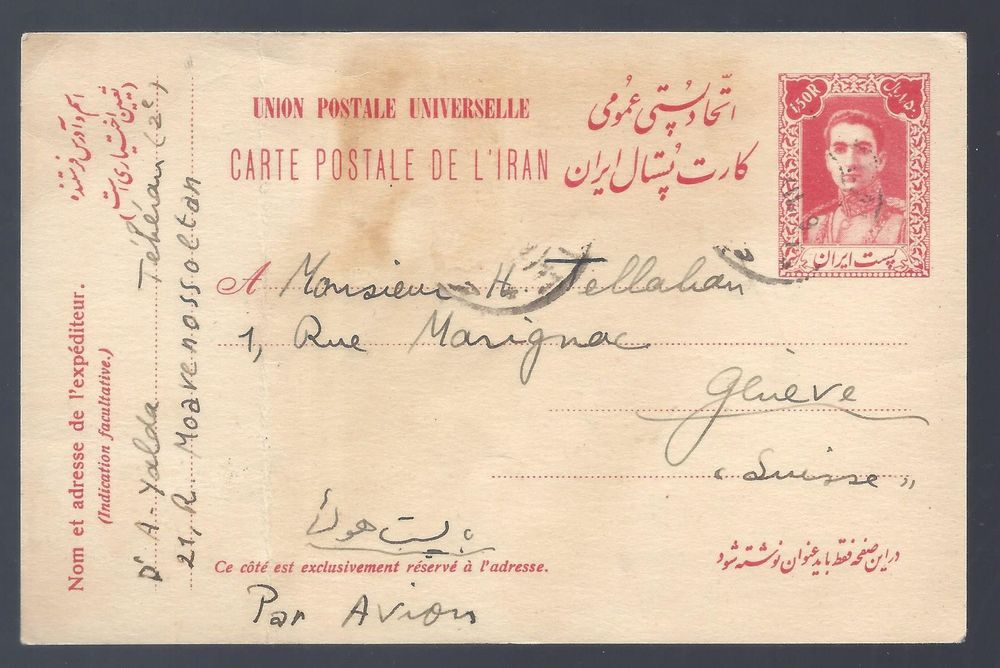 UNION POSTALE UNIVERSELLE
اتحاد پستی عمومی
CARTE POSTALE DE L'IRAN
کارت پستال ایران
1.50R
۱٫۵۰ ریال
پست ایران
A Monsieur H. Tellahan
1, Rue Marignac
Genève
"Suisse"
با پست هوائی
Ce côté est exclusivement réservé à l'adresse.
در این صفحه فقط باید عنوان نوشته شود
Par Avion
اسم و آدرس فرستنده
(تعیین اختیاری است)
Nom et adresse de l'expéditeur.
(Indication facultative.)
Dr A. Yalda Téhéran (2e)
21, R. Moavenossoltan